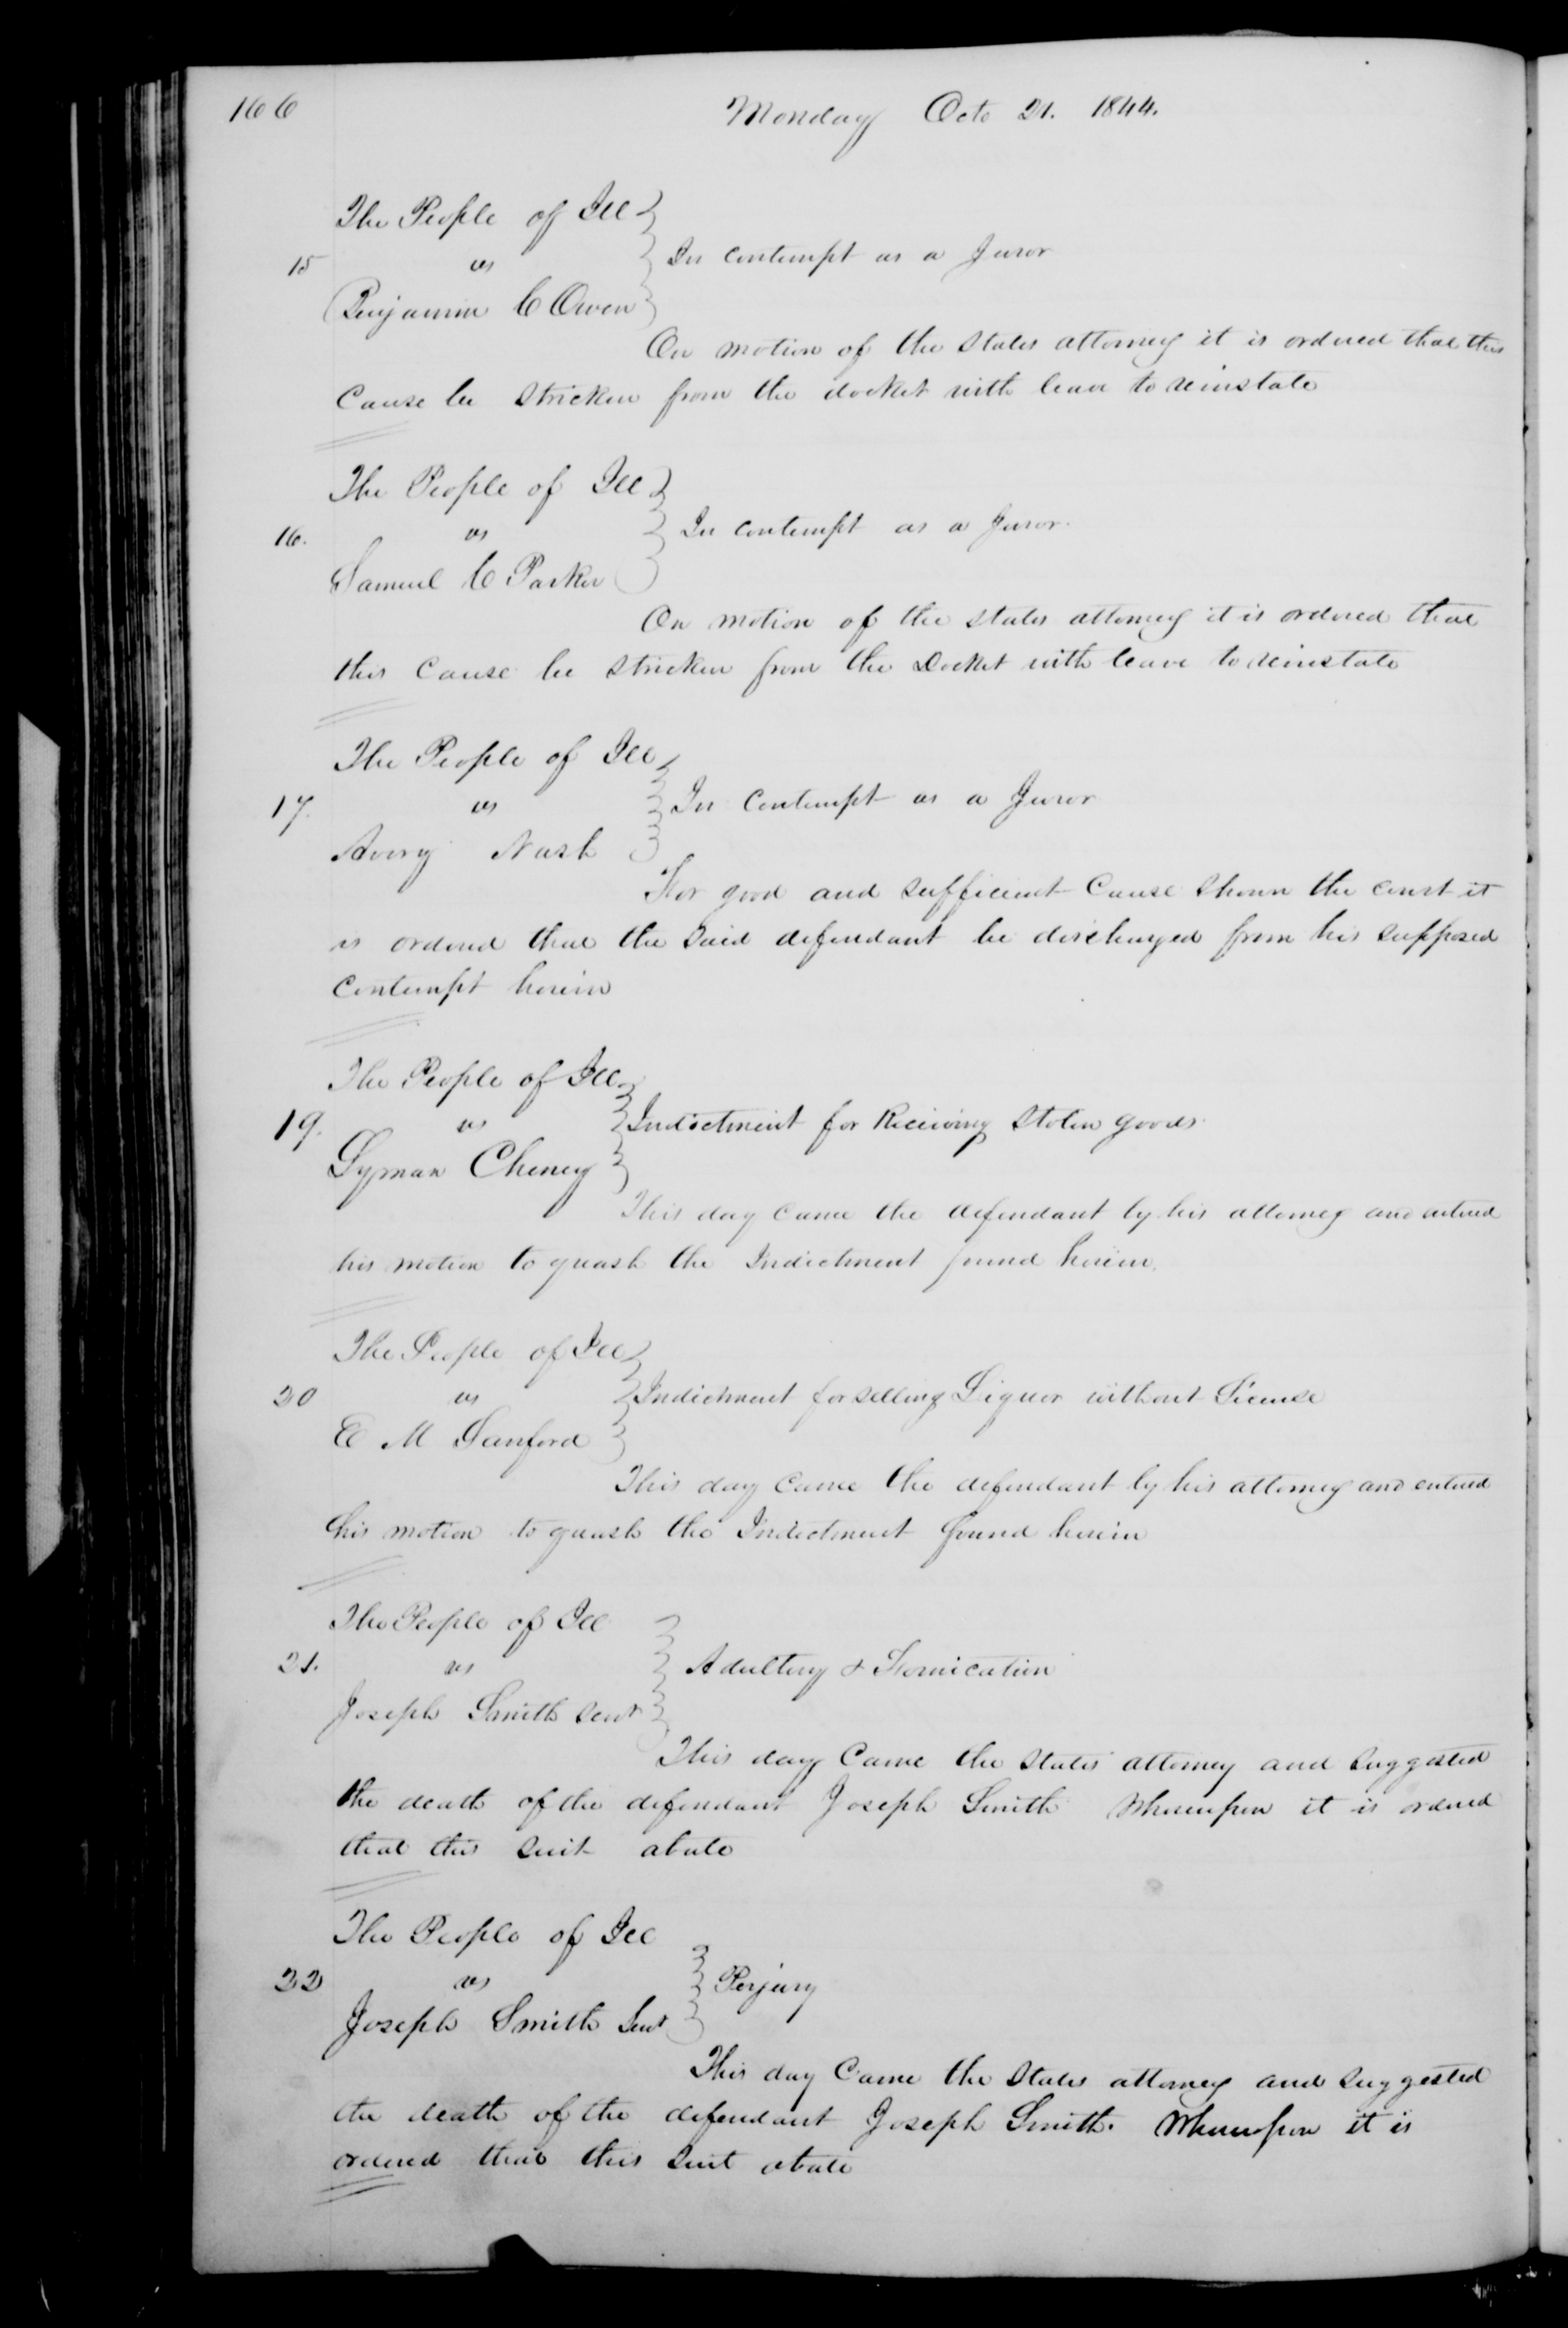 166
Monday Octo 21. 1844.
The People of Ill
15 vs In contempt as a Juror
Benjamin C Owen
On motion of the States attorney it is ordered that this
Cause be Stricken from the docket with leave to reinstate
The People of Ill
16. vs In contempt as a Juror.
Samuel C Parker
On motion of the states attorney it is ordered that
this Cause be Stricken from the Docket with leave to reinstate
The People of Ill
17. vs In Contempt as a Juror
Avery Nash
For good and sufficient Cause Shown the court it
is ordered that the Said defendant be discharged from his supposed
Contempt herein
The People of Ill
19. vs Indictment for Receiving Stolen goods.
Lyman Cheney
This day came the defendant by his attorney and entered
his motion to quash the Indictment found herein.
The People of Ill
20 vs Indictment for selling Liquor without License
E M Sanford
This day Came the defendant by his attorney and entered
his motion to quash the Indictment found herein
The People of Ill
21. vs Adultery & Fornication
Joseph Smith
This day Came the States attorney and Suggested
the death of the defendant Joseph Smith Whereupon it is ordered
that this Suit abate
The People of Ill
22 vs Perjury
Joseph Smith
This day Came the States attorney and Suggested
the death of the defendant Joseph Smith. Whereupon it is
ordered that this Suit abate